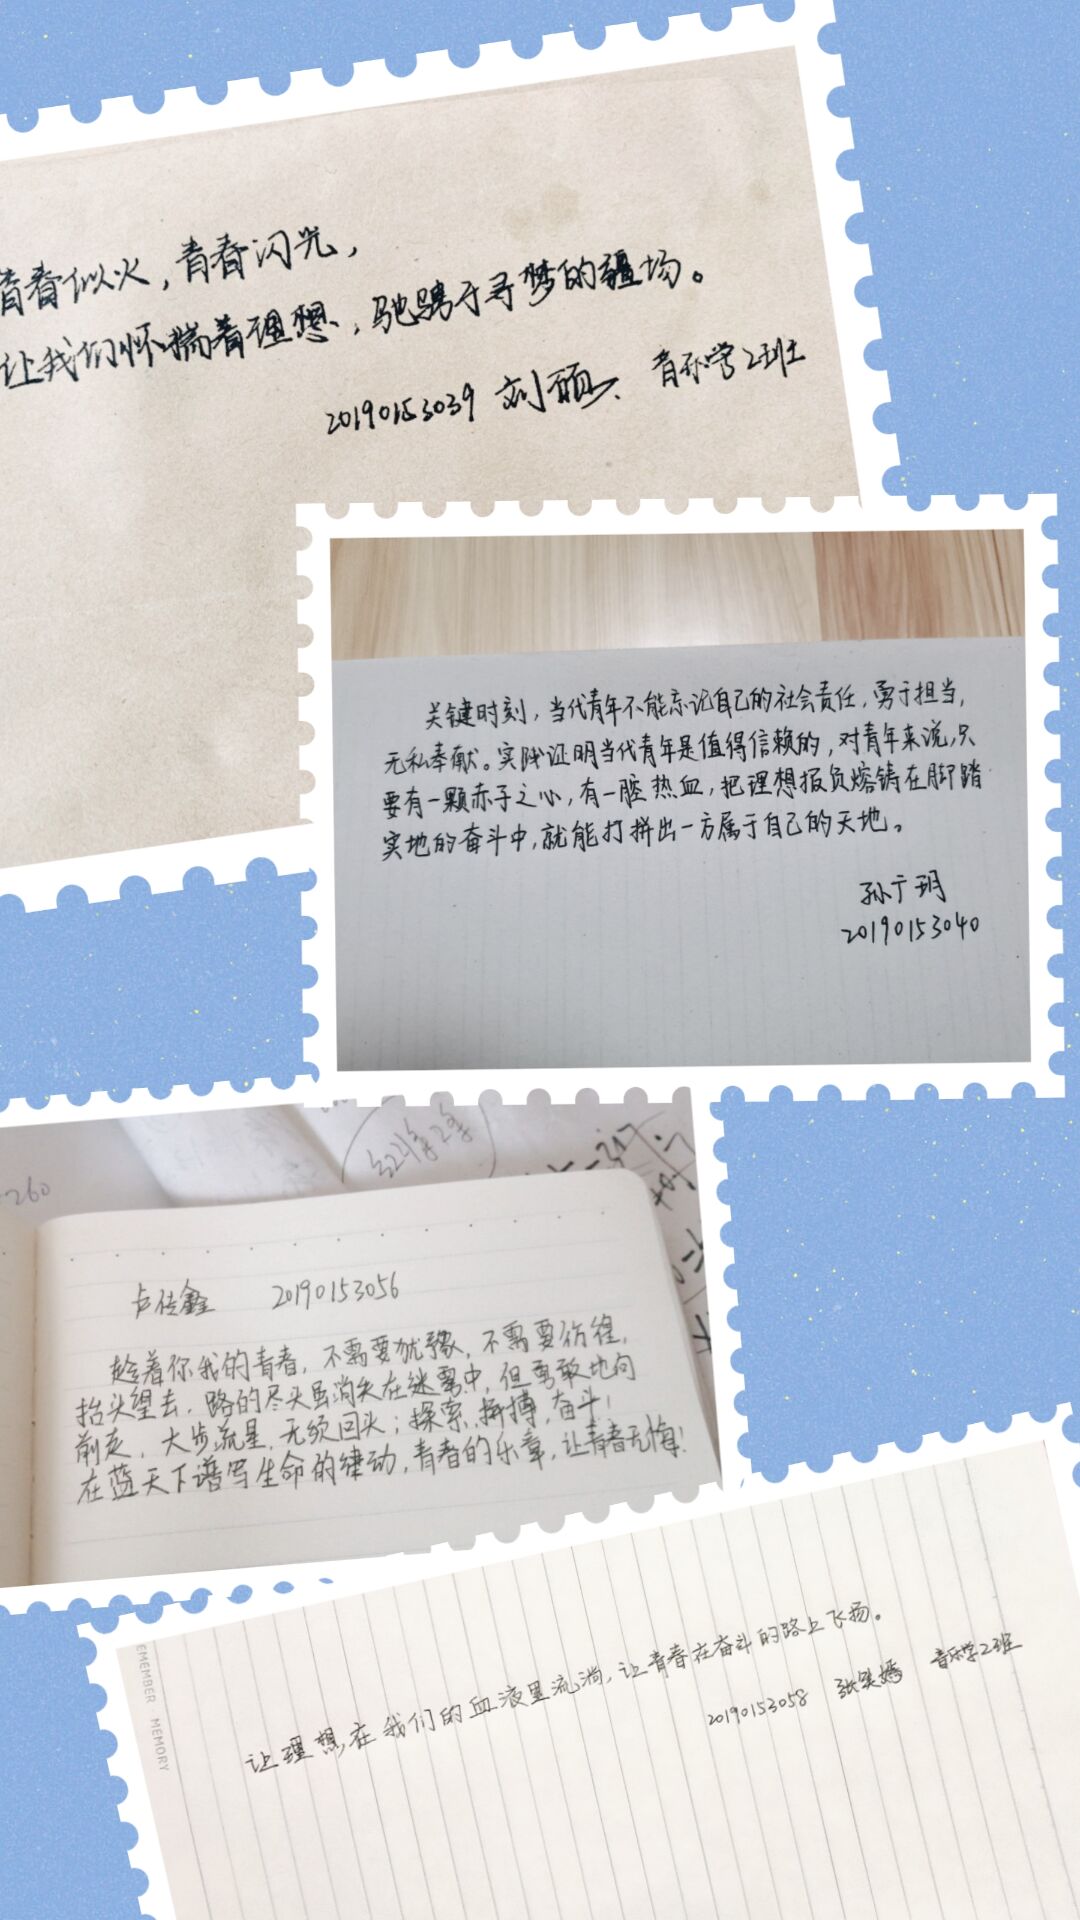 青春似火，青春闪光，
让我们怀揣着理想，驰骋于寻梦的疆场。
20190153039 刘硕 音乐学2班
关键时刻，当代青年不能忘记自己的社会责任，勇于担当，
无私奉献。实践证明当代青年是值得信赖的，对青年来说，只
要有一颗赤子之心，有一腔热血，把理想报负熔铸在脚踏
实地的奋斗中，就能打拼出一方属于自己的天地。
孙广玥
20190153040
260
卢传鑫 20190153056
趁着你我的青春，不需要犹豫，不需要彷徨，
抬头望去，路的尽头虽消失在迷雾中，但勇敢地向
前走，大步流星，无须回头；探索，拼搏，奋斗！
在蓝天下谱写生命的律动，青春的乐章，让青春无悔！
EMEMBER MEMORY
让理想在我们的血液里流淌，让青春在奋斗的路上飞扬。
20190153058 张笑嫣 音乐学2班